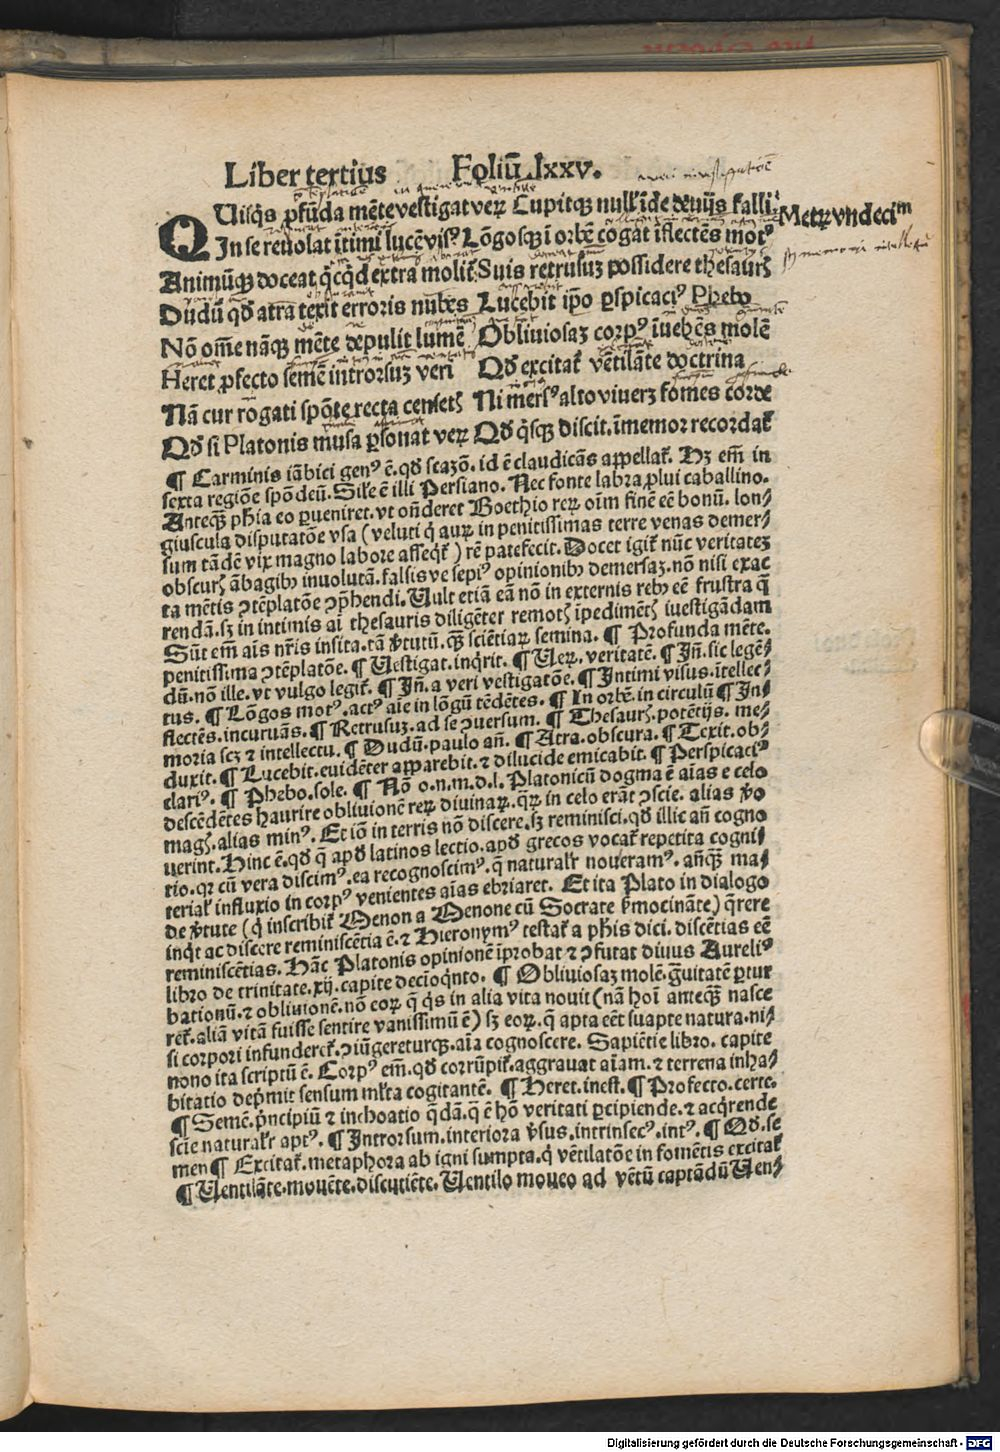 Liber tertius Foliū lxxv.
QUisq̄s ꝓfūda mēte vestigat verꝫ Cupitqꝫ null᷒ īde deuijs falli
Metꝝ vndeciᵐ
In se reuolat ītimi lucē visꝰ Lōgosqꝫ ī orbē cogat iflectēs motꝰ
Animūqꝫ doceat q̇cq̇d extra molit᷒ Suis retrusuꝫ possidere thesaurꝭ
Dudū qđ atra texit erroris nubēs Lucebit ip̄o ꝑspicaciꝰ Phebo
Nō om̄e nāqꝫ mēte depulit lumē Obliuiosaꝫ corpꝰ īuehēs molē
Heret ꝓfecto semē introrsuꝫ veri Qđ excitat᷒ vētilāte doctrina
Nā cur rogati spōte recta censetꝭ Ni mersꝰ alto viuerꝫ fomes corde
Qđ si Platonis musa ꝑsonat verꝫ Qđ q̄sqꝫ discit. īmemor recordat᷒
¶ Carminis iābici genꝰ ē. qđ scazō. id ē claudicās appellat᷒. Hꝫ em̄ in
sexta regiōe spōdeū. Sil᷒e ē illi Persiano. Nec fonte labra ꝓlui caballino.
Anteqꝫ ph̄ia eo ꝑueniret. vt on̄deret Boethio reꝝ oīm finē eē bonū. lon⸗
giuscula disputatōe vsa (veluti q̇ auꝝ in penitissimas terre venas demer⸗
sum tādē vix magno labore asseq̇t᷒) rē patefecit. Docet igit᷒ nūc veritateꝫ
obscurꝭ ābagibꝫ inuolutā. falsis ve sepiꝰ opinionibꝫ demersaꝫ. nō nisi exac
ta mētis ꝯtēplatōe ꝯp̄hendi. Uult etiā eā nō in externis rebꝫ eē frustra q̄
rendā. sꝫ in intimis ai thesauris diligēter remotꝭ īpedimētꝭ iuestigādam
Sūt em̄ ais nr̄is insita. tā v̓tutū. qꝫ sciētiaꝝ semina. ¶ Profunda mēte.
penitissima ꝯtēplatōe. ¶ Uestigat. inq̇rit. ¶ Ueꝝ. veritatē. ¶ Jn̄. sic legē⸗
dū. nō ille. vt vulgo legit᷒. ¶ Jn̄. a veri vestigatōe. ¶ Intimi visus. ītellec⸗
tus. ¶ Lōgos motꝰ. actꝰ aīe in lōgū tēdētes. ¶ In orbē. in circulū ¶ In⸗
flectēs. incuruās. ¶ Retrusuꝫ. ad se ꝯuersum. ¶ Thesaurꝭ. potētijs. me⸗
moria scꝫ ⁊ intellectu. ¶ Dudū. paulo an̄. ¶ Atra. obscura. ¶ Texit. ob⸗
duxit. ¶ Lucebit. euidēter apparebit. ⁊ dilucide emicabit. ¶ Perspicaciꝰ
clariꝰ. ¶ Phebo. sole. ¶ Nō o. n. m. d. l. Platonicū dogma ē aīas e celo
descēdētes haurire obliuionē reꝝ diuinaꝝ. q̄ꝝ in celo erāt ꝯscie. alias v̓o
magꝭ. alias minꝰ. Et iō in terris nō discere. sꝫ reminisci. qđ illic an̄ cogno
uerint. Hinc ē. qđ q̄ apđ latinos lectio. apđ grecos vocat᷒ repetita cogni⸗
tio. qꝛ cū vera discimꝰ. ea recognoscimꝰ. q̄ natural᷒r noueramꝰ. an̄qꝫ ma⸗
terial᷒ influxio in corpꝰ venientes aīas ebriaret. Et ita Plato in dialogo
de v̓tute (q̇ inscribit᷒ Menon a Menone cū Socrate s̓mocināte) q̄rere
inq̇t ac discere reminiscētia ē. ⁊ Hieronymꝰ testat᷒ a ph̄is dici. discētias eē
reminiscētias. Hāc Platonis opinionē īprobat ⁊ ꝯfutat diuus Aureliꝰ
libro de trinitate. xij. capite decīoq̄nto. ¶ Obliuiosaꝫ molē. g̓uitatē ꝑtur
bationū. ⁊ obliuionē. nō coꝝ q̄ q̇s in alia vita nouit (nā hoī anteqꝫ nasce
ret᷒. aliā vitā fuisse sentire vanissimū ē) sꝫ eoꝝ. q̄ apta eēt suapte natura. ni⸗
si corpori infunderet᷒. ꝯiūgereturqꝫ. aīa cognoscere. Sapiētie libro. capite
nono ita scriptū ē. Corpꝰ em̄. qđ corrūpit᷒. aggrauat aīam. ⁊ terrena inha⸗
bitatio dep̓mit sensum ml᷒ta cogitantē. ¶ Heret. inest. ¶ Profecto. certe.
¶ Semē. p̓ncipiū ⁊ inchoatio q̄dā. q̄ ē hō veritati ꝑcipiende. ⁊ acq̇rende
scīe natural᷒r aptꝰ. ¶ Introrsum. interiora v̓sus. intrinsecꝰ. intꝰ. ¶ Qđ. se
men ¶ Excitat᷒. metaphora ab igni sumpta. q̇ vētilatōe in fomētis excitat᷒
¶ Uentilāte. mouēte. discutiēte. Uentilo moueo ad vētū captādū Uen⸗
Digitalisierung gefördert durch die Deutsche Forschungsgemeinschaft - DFG